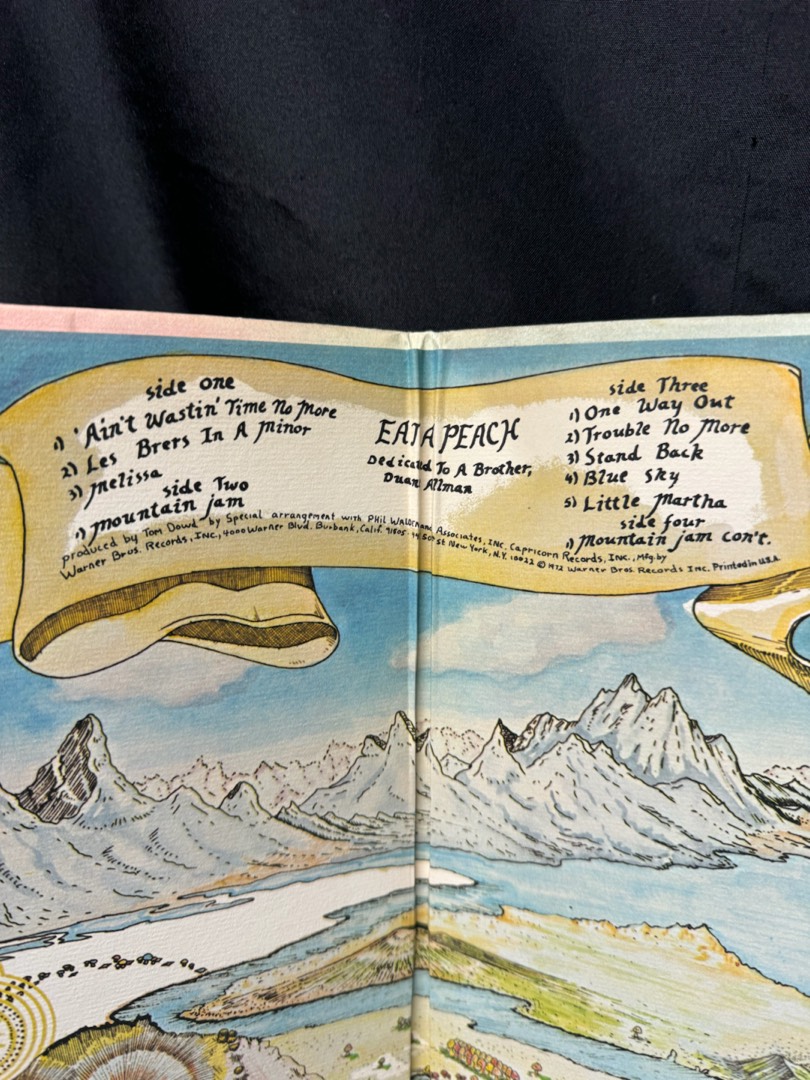 side one
1) 'Ain't Wastin' Time No More
2) Les Brers In A Minor
3) Melissa
side Two
1) Mountain Jam
EAT A PEACH
Dedicated To A Brother,
Duane Allman
side Three
1) One Way Out
2) Trouble No More
3) Stand Back
4) Blue Sky
5) Little Martha
side four
1) Mountain Jam con't.
produced by Tom Dowd by Special arrangement with Phil Walden and Associates, INC. Capricorn Records, INC., Mfg. by
Warner Bros. Records, INC., 4000 Warner Blvd. Burbank, Calif. 91505. 44 50 St New York, N.Y. 10022 © 1972 Warner Bros. Records Inc. Printed in U.S.A.